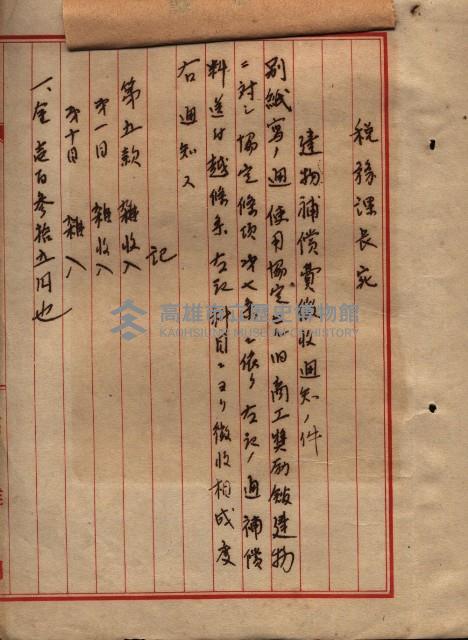 税務課長宛
建物補償費徴収通知ノ件
別紙寫ノ通使用協定セル旧商工奨励館建物
ニ対シ協定條項第七条ニ依リ左記ノ通補償
料送付越候条左記科目ニヨリ徴收相成度
右通知ス
記
第五款 雜收入
第一目 雜收入
第十目 雜入
一、金壱百参拾五円也
高雄市立歷史博物館
KAOHSIUNG MUSEUM OF HISTORY